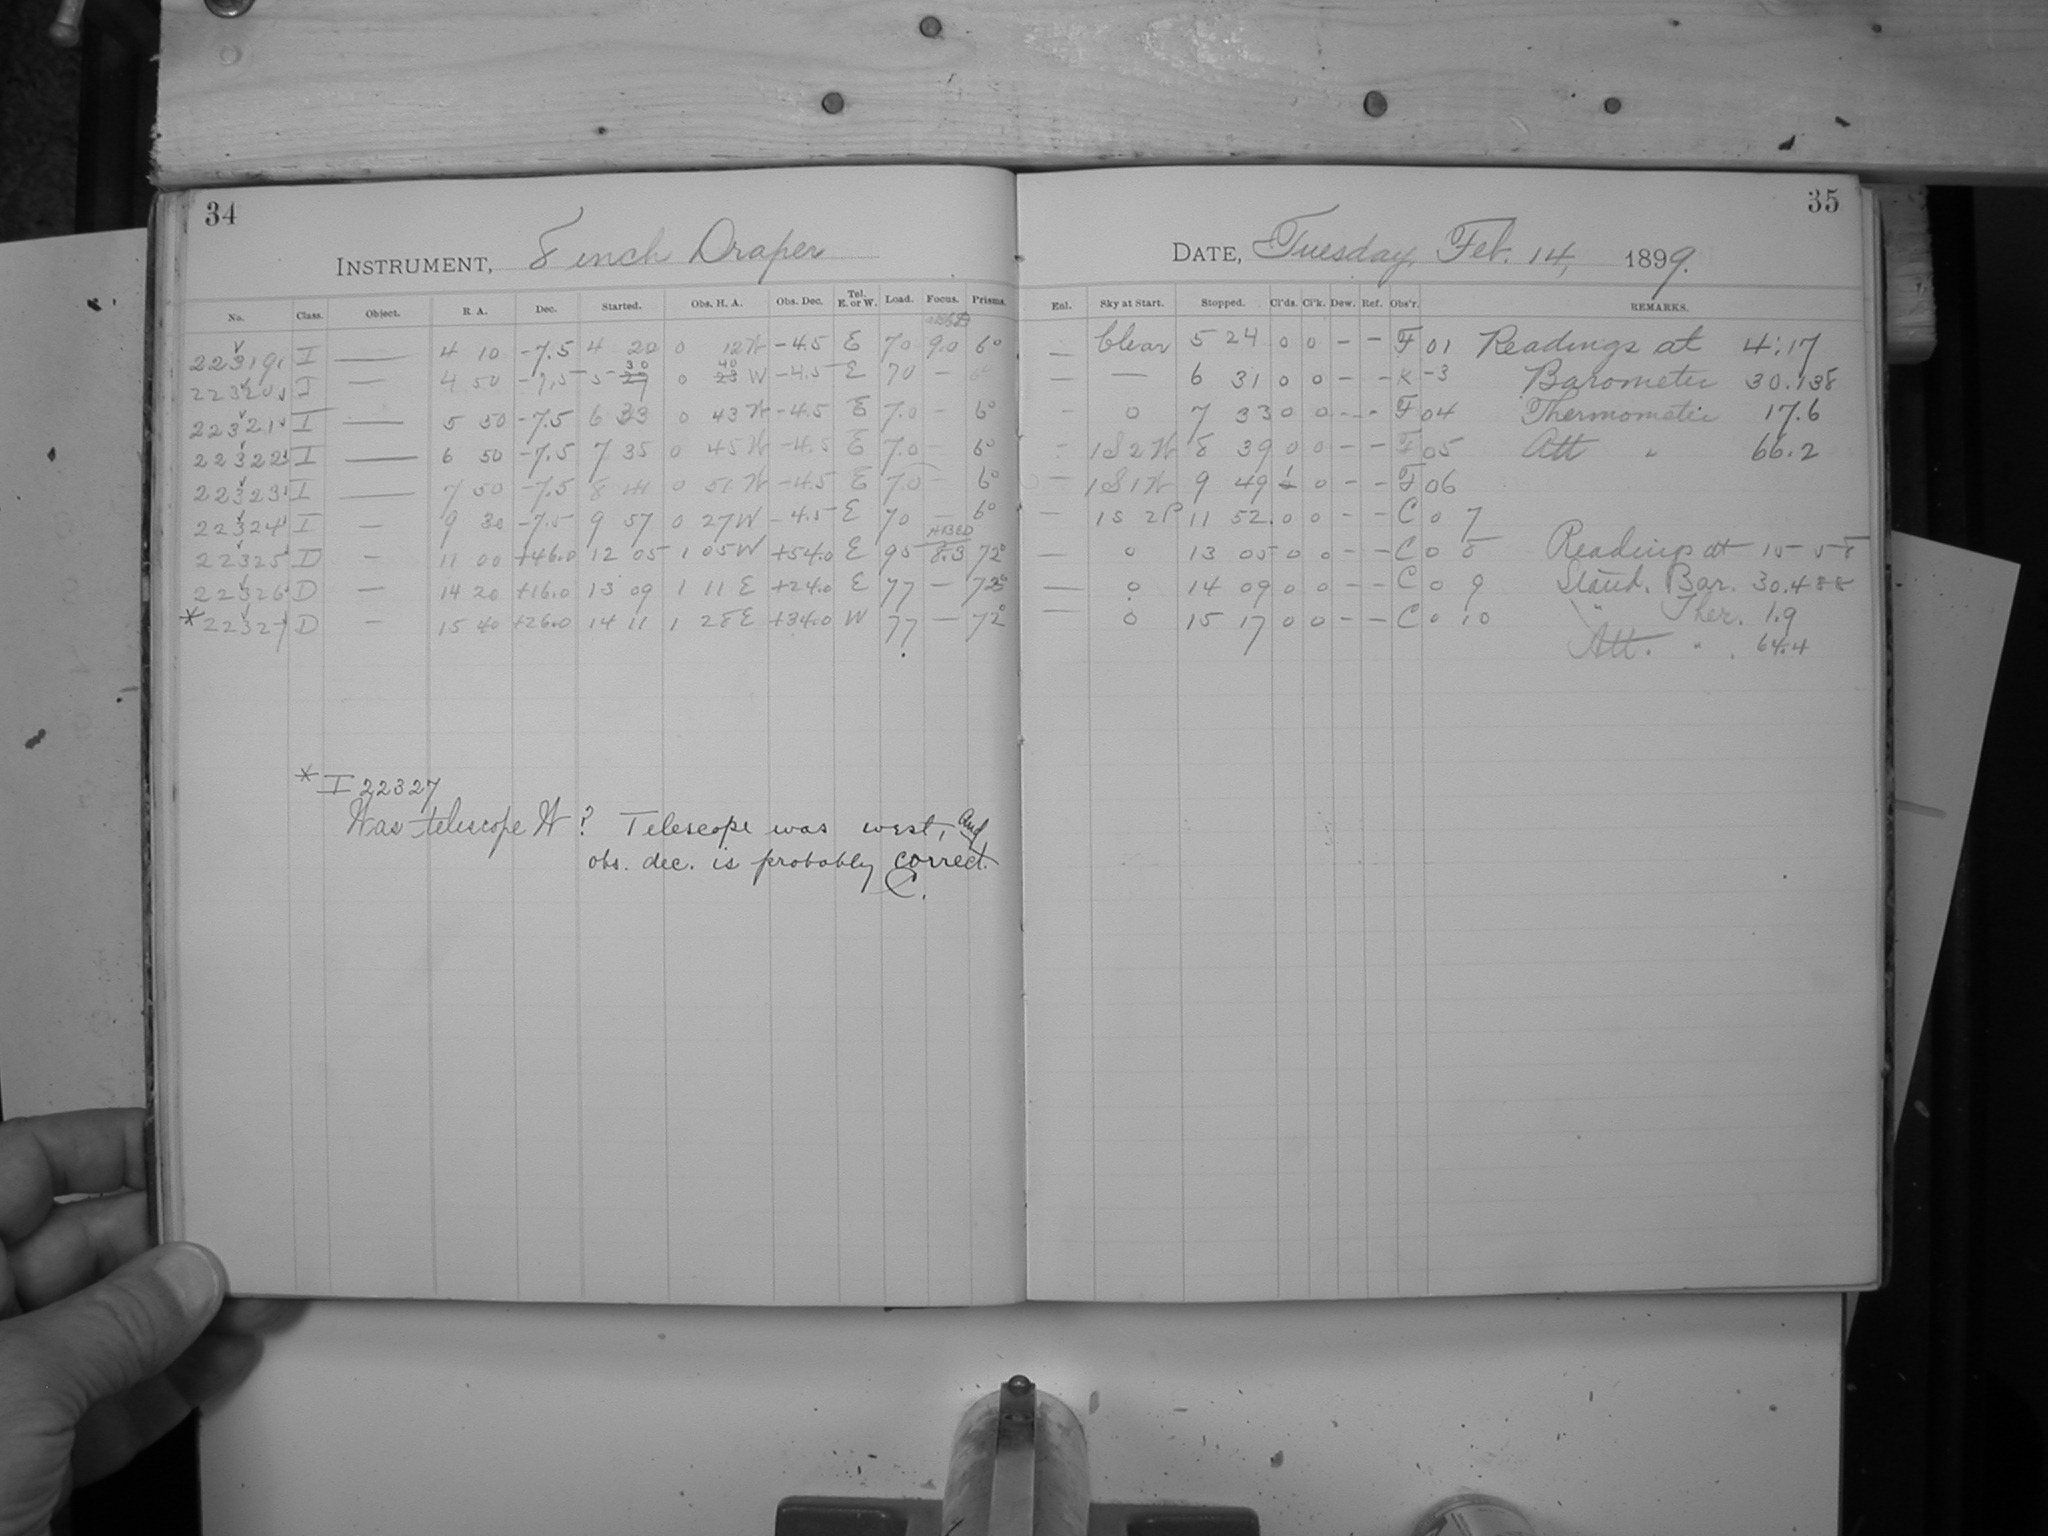 34
35
INSTRUMENT, 8 inch Draper
DATE, Tuesday, Feb. 14, 1899.
No. Class. Object. R A. Dec. Started. Obs. H. A. Obs. Dec. Tel. E. or W. Load. Focus. Prisms. Enl. Sky at Start. Stopped. Cl'ds. Cl'k. Dew. Ref. Obs'r. REMARKS.
22319 I — 4 10 -7.5 4 20 0 12 W -4.5 E 70 9.0 6° — Clear 5 24 0 0 - - F 01 Readings at 4:17
22320 I — 4 50 -7.5 5 29 30 0 23 40 W -4.5 E 70 — — — 6 31 0 0 - - K -3 Barometer 30.138
22321 I — 5 50 -7.5 6 33 0 43 W -4.5 E 7.0 - 6° - 0 7 33 0 0 - - F 04 Thermometer 17.6
22322 I — 6 50 -7.5 7 35 0 45 W -4.5 E 7.0 - 6° - 1S2W 8 39 0 0 - - F 05 Att " 66.2
22323 I — 7 50 -7.5 8 41 0 51 W -4.5 E 70 - 6° - 1S1W 9 49 1 0 - - F 06
22324 I — 9 30 -7.5 9 57 0 27 W -4.5 E 70 — 6° — 1S 2P 11 52 0 0 - - C 0 7
ABCD
22325 D - 11 00 +46.0 12 05 1 05 W +54.0 E 95 8.3 72° — 0 13 05 0 0 - - C 0 8 Readings at 15 58
22326 D - 14 20 +16.0 13 09 1 11 E +24.0 E 77 — 72° — 0 14 09 0 0 - - C 0 9 Stand. Bar. 30.488
*22327 D - 15 40 +26.0 14 11 1 28 E +34.0 W 77 — 72° — 0 15 17 0 0 - - C 0 10 " Ther. 1.9
Att. " . 64.4
* I 22327
Was telescope W? Telescope was west, and
obs. dec. is probably correct.
C.